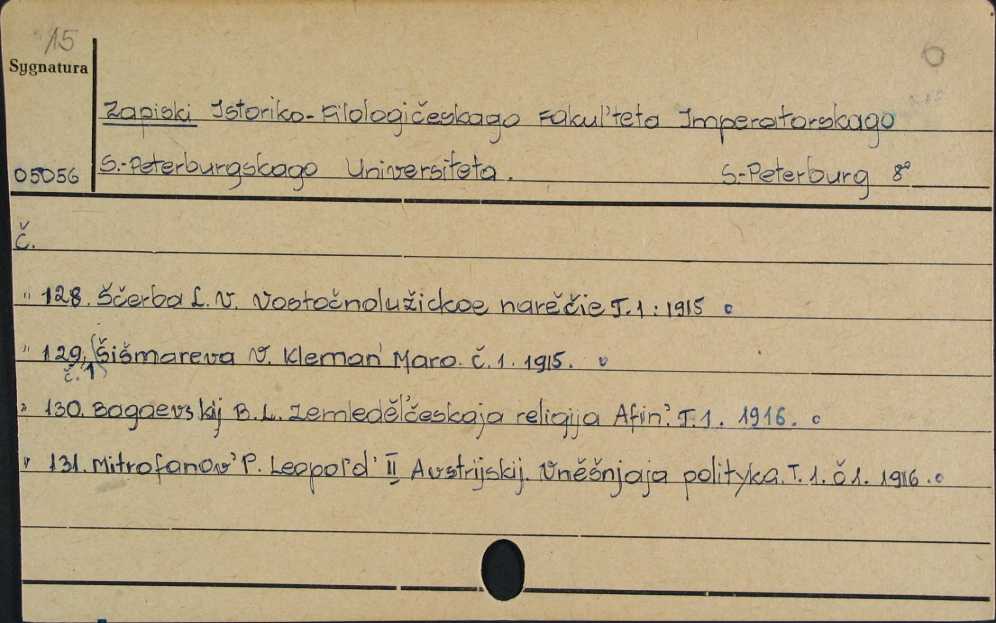 15
Sygnatura
Zapiski Istoriko-Filologičeskago Fakul'teta Imperatorskago
05056 S.-Peterburgskago Universiteta. S.-Peterburg 8°
č.
" 128. Ščerba L. V. Vostočnolužickoe narěčie T.1 : 1915
" 129. Šišmareva V. Kleman' Maro. č. 1. 1915.
č. 1)
" 130. Bogaevskij B. L. Zemleděl'českaja religija Afin'. T.1. 1916.
" 131. Mitrofanov' P. Leopol'd' II Avstrijskij. Vněšnjaja polityka. T. 1. č 1. 1916.